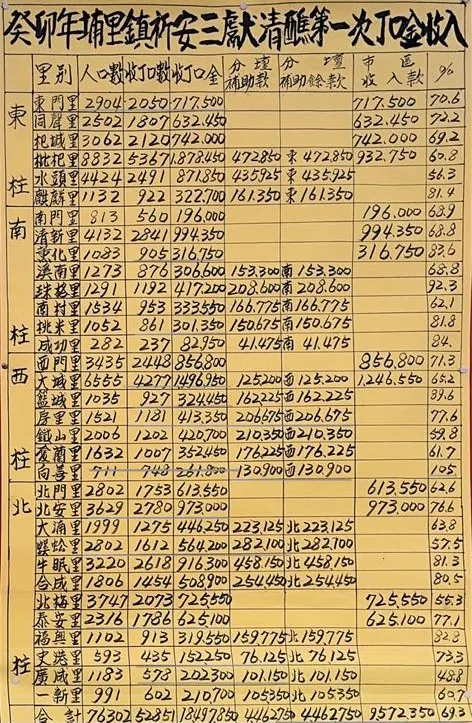 癸卯年埔里鎮祈安三獻大清醮第一次丁口金收入
里別 人口數 收丁口數 收丁口金 分壇補助款 分壇補助餘款 市區收入款 %
東柱
東門里 2904 2050 717.500 717.500 70.6
同聲里 2502 1807 632.450 632.450 72.2
杷城里 3062 2120 742.000 742.000 69.2
枇杷里 8832 5367 1.878.450 472.850 東 472.850 932.750 60.8
水頭里 4424 2491 871.850 435.925 東 435.925 56.3
麒麟里 1132 922 322.700 161.350 東 161.350 81.4
南柱
南門里 813 560 196.000 196.000 68.9
清新里 4132 2841 994.350 994.350 68.8
薰化里 1083 905 316.750 316.750 83.6
溪南里 1273 876 306.600 153.300 南 153.300 68.8
珠格里 1291 1192 417.200 208.600 南 208.600 92.3
南村里 1534 953 333.550 166.775 南 166.775 62.1
桃米里 1052 861 301.350 150.675 南 150.675 81.8
成功里 282 237 82.950 41.475 南 41.475 84.
西柱
西門里 3435 2448 856.800 856.800 71.3
大城里 6555 4277 1496.950 125.200 西 125.200 1.246.550 65.2
籃城里 1035 927 324.450 162.225 西 162.225 89.6
房里里 1521 1181 413.350 206.675 西 206.675 77.6
鐵山里 2006 1202 420.700 210.350 西 210.350 59.8
愛蘭里 1632 1007 352.450 176.225 西 176.225 61.7
向善里 711 748 261.800 130.900 西 130.900 105
北柱
北門里 2802 1753 613.550 613.550 62.6
北安里 3629 2780 973.000 973.000 76.6
大湳里 1999 1275 446.250 223.125 北 223.125 63.8
蜈蚣里 2802 1612 564.200 282.100 北 282.100 57.5
牛眠里 3220 2618 916.300 458.150 北 458.150 81.3
合成里 1806 1454 508.900 254.450 北 254.450 80.5
北梅里 3747 2073 725.550 725.550 55.3
泰安里 2316 1786 625.100 625.100 77.1
福興里 1102 913 319.550 159.775 北 159.775 82.8
史港里 593 435 152.250 76.125 北 76.125 73.3
廣成里 1183 578 202.300 101.150 北 101.150 48.8
一新里 991 602 210.700 105.350 北 105.350 60.7
合計 76302 52851 18497.850 4462.750 4462.750 9572.350 69.3